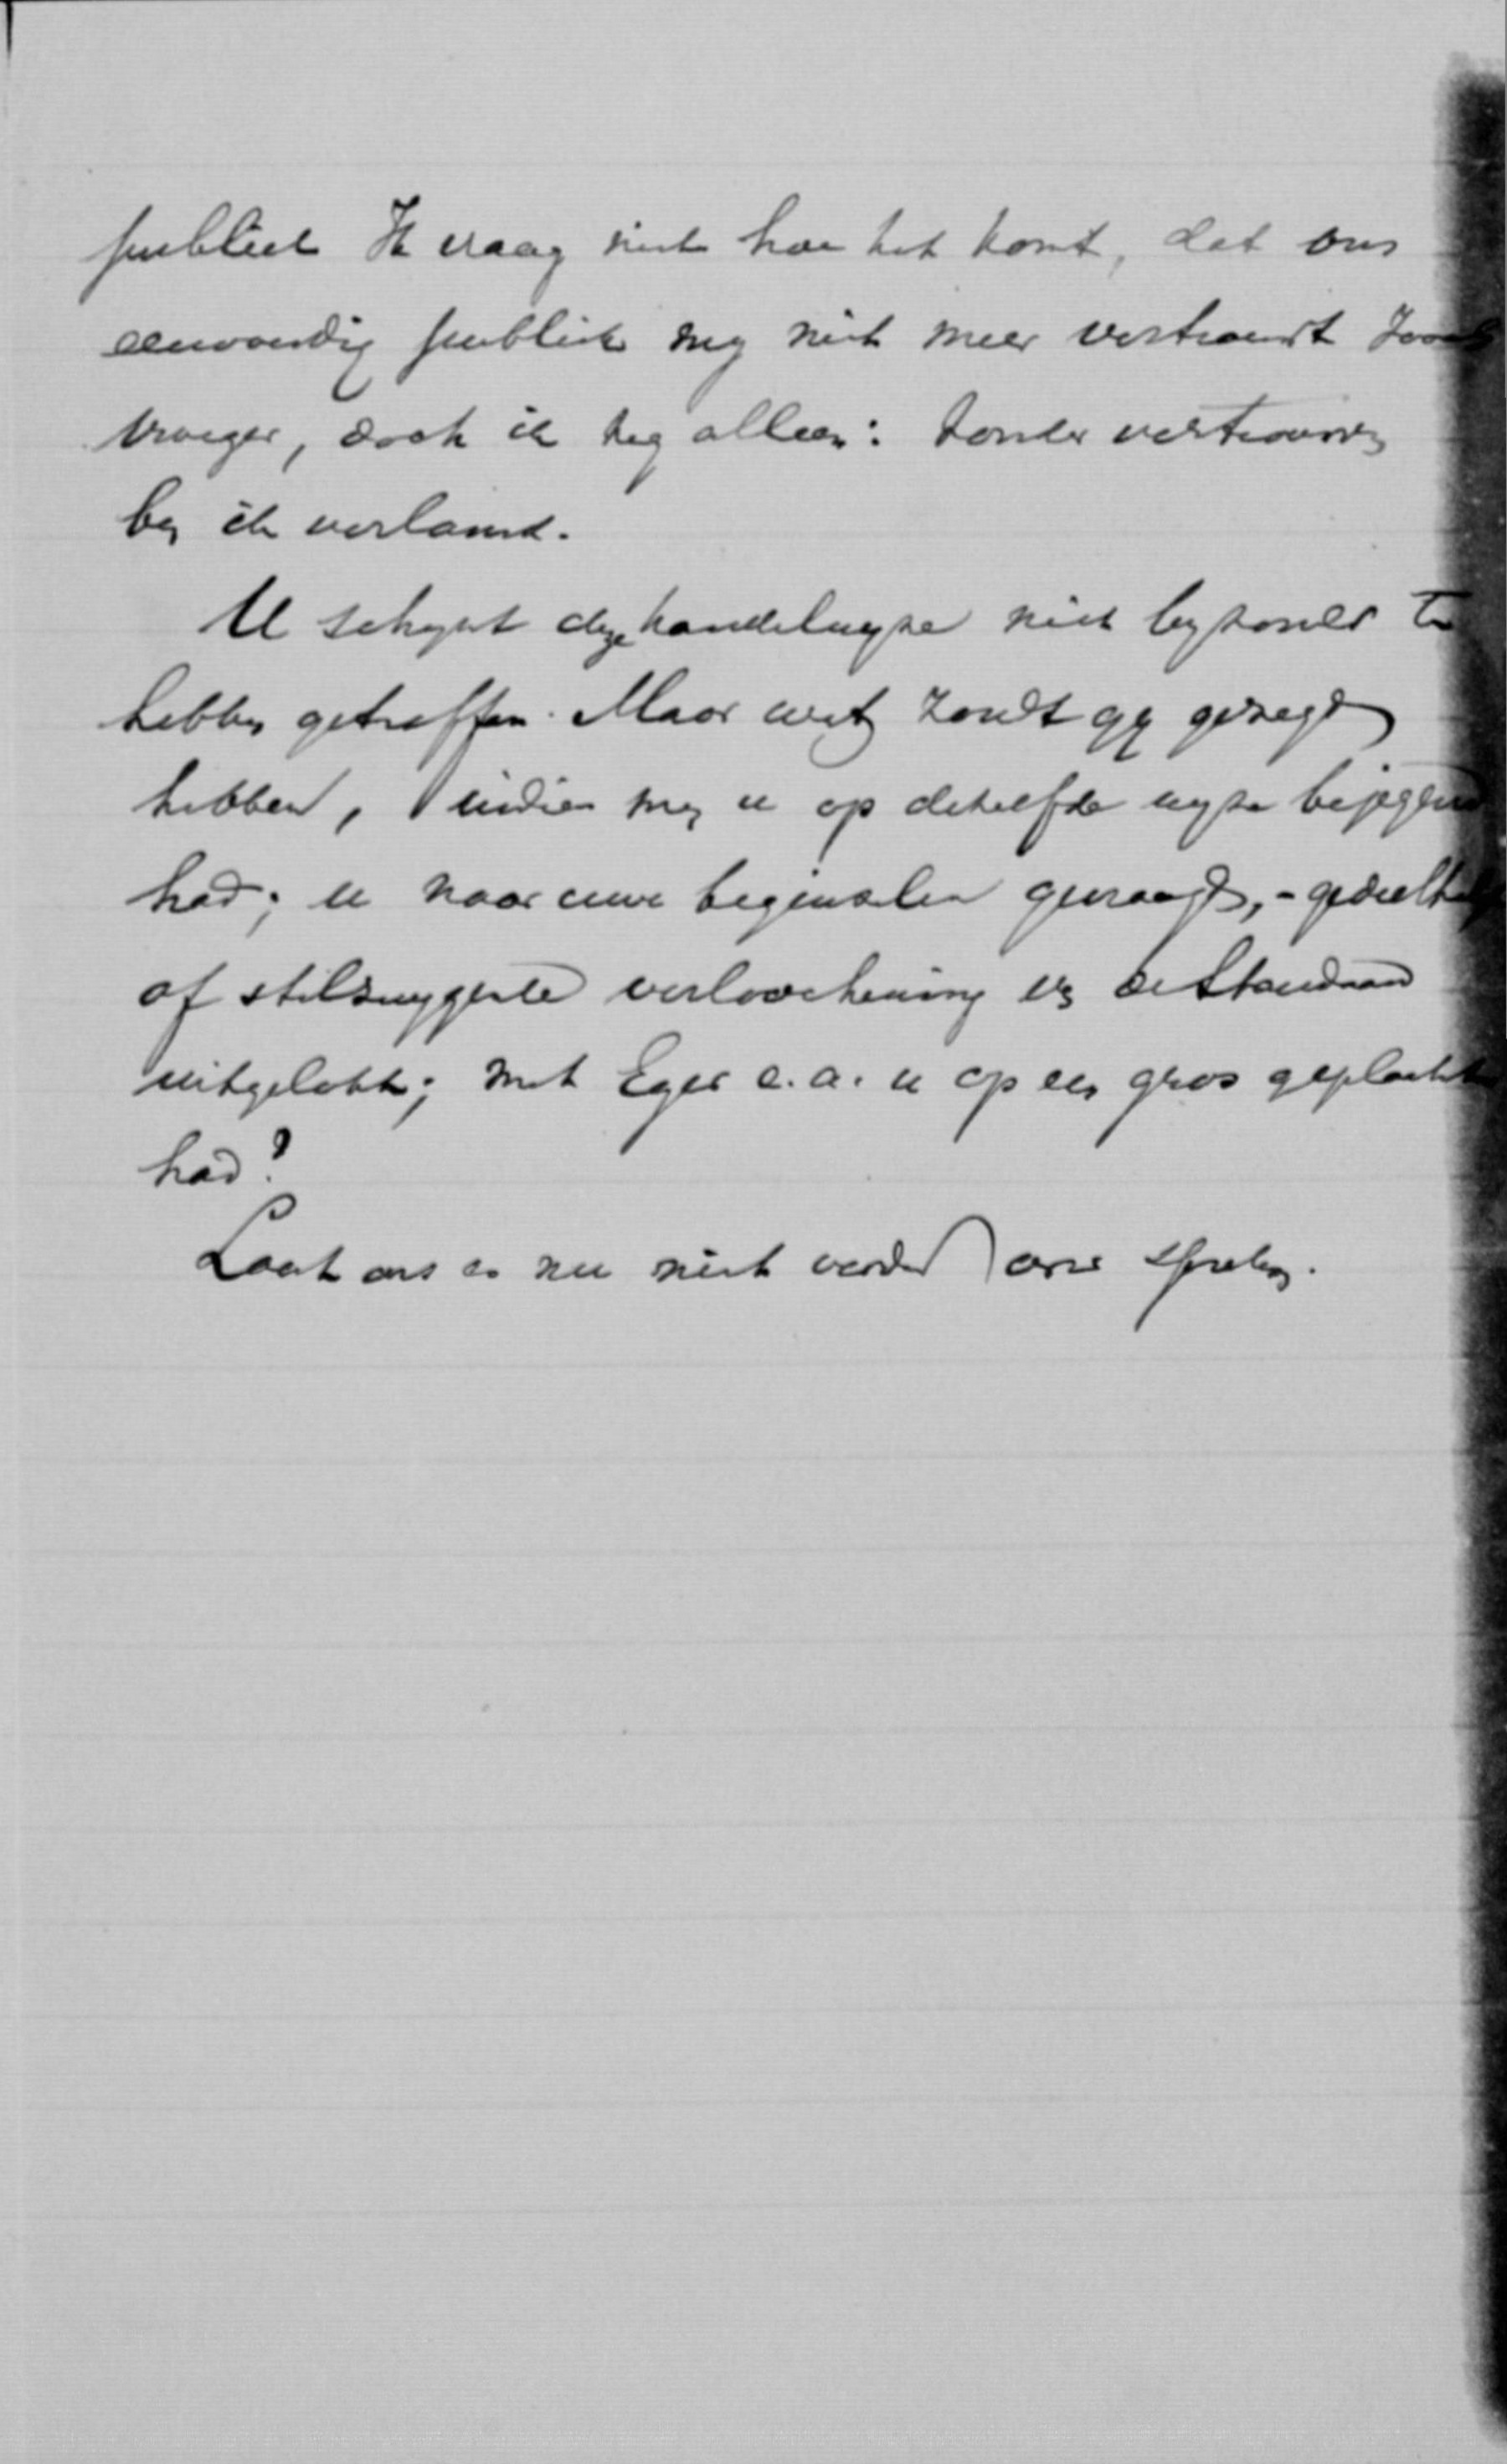 publiek Ik vraag niet hoe het komt, dat ons
eenvoudig publiek my niet meer vertrouwt zooals
vroeger, doch ik zeg alleen: zonder vertrouwen
ben ik verlamd.
U schynt deze handelwyze niet byzonder te
hebben getroffen. Maar wat zoudt gy gezegd
hebben, indien men u op dezelfde wyze bejegend
had; u naar uwe beginselen gevraagd, - gedeeltelyke
of stilzwygende verloochening in de Standaard
uitgelokt; met Eger e.a. u op een gros geplaatst
had?
Laat ons er nu niet verder over spreken.